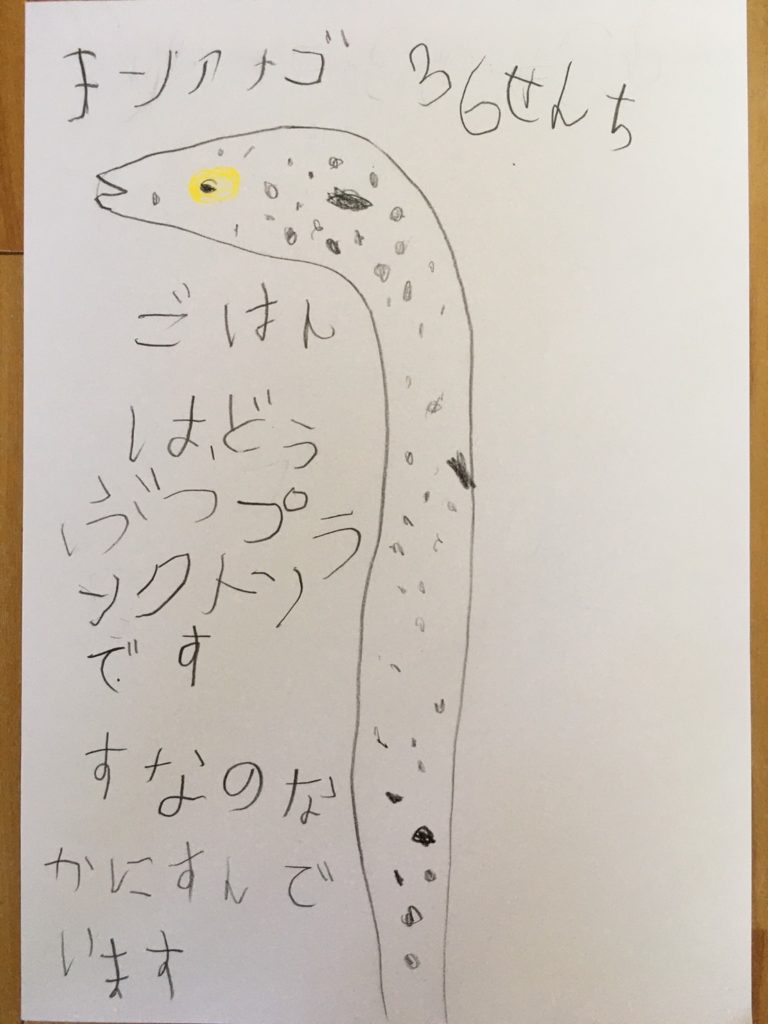 チンアナゴ 36せんち
ごはん
は、どう
ぶつプラ
ンクトン
です
すなのな
かにすんで
います